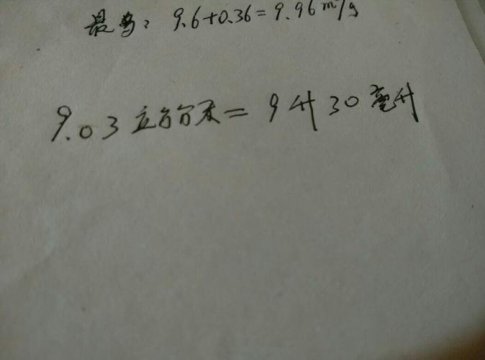 最多：9.6+0.36=9.96m/s
9.03立方分米=9升30毫升